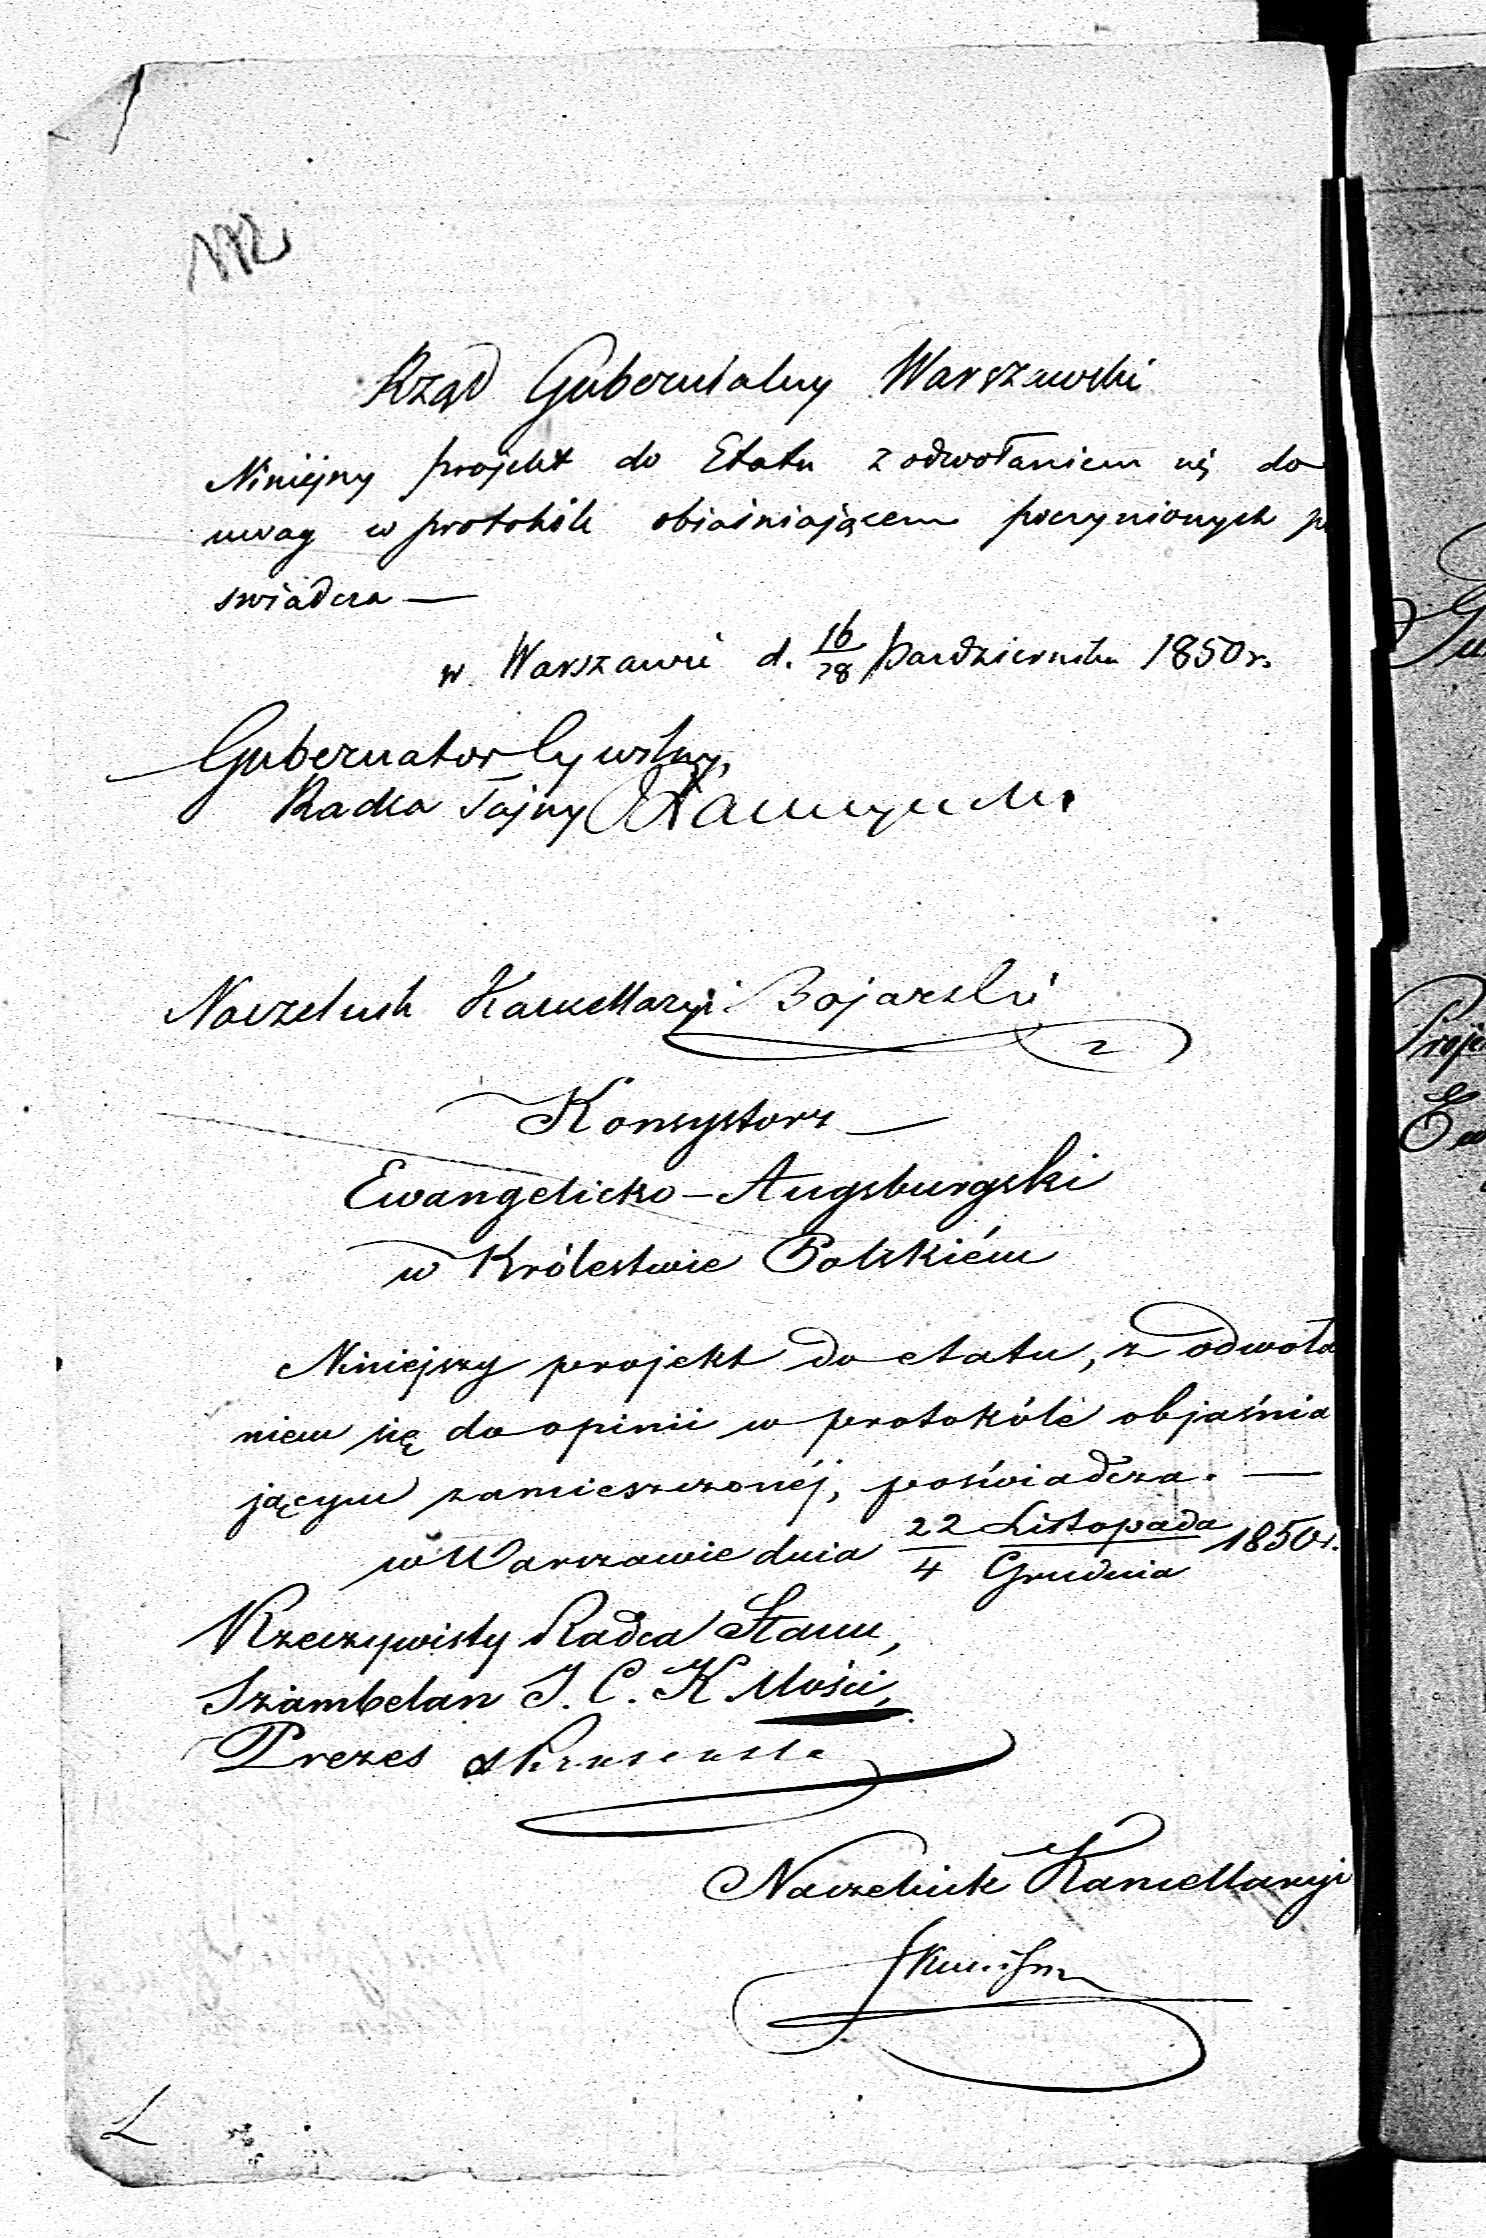 Rząd Gubernialny Warszawski
Niniejszy projekt do Etatu z odwołaniem się do
uwag w protokóle objaśniającem poczynionych po
świadcza —
w Warszawie d. 16/28 Października 1850 r.
Gubernator Cywilny,
Radca Tajny
Naczelnik Kancellaryi Bojarski
Konsystorz
Ewangelicko-Augsburgski
w Królestwie Polskiém
Niniejszy projekt do etatu, z odwoła
niem się do opinii w protokóle objaśnia
jącym zamieszczonéj, poświadcza. —
w Warszawie dnia 22 Listopada / 4 Grudnia 1850 r.
Rzeczywisty Radca Stanu,
Szambelan J. C. K. Mości,
Prezes
Naczelnik Kancellaryi